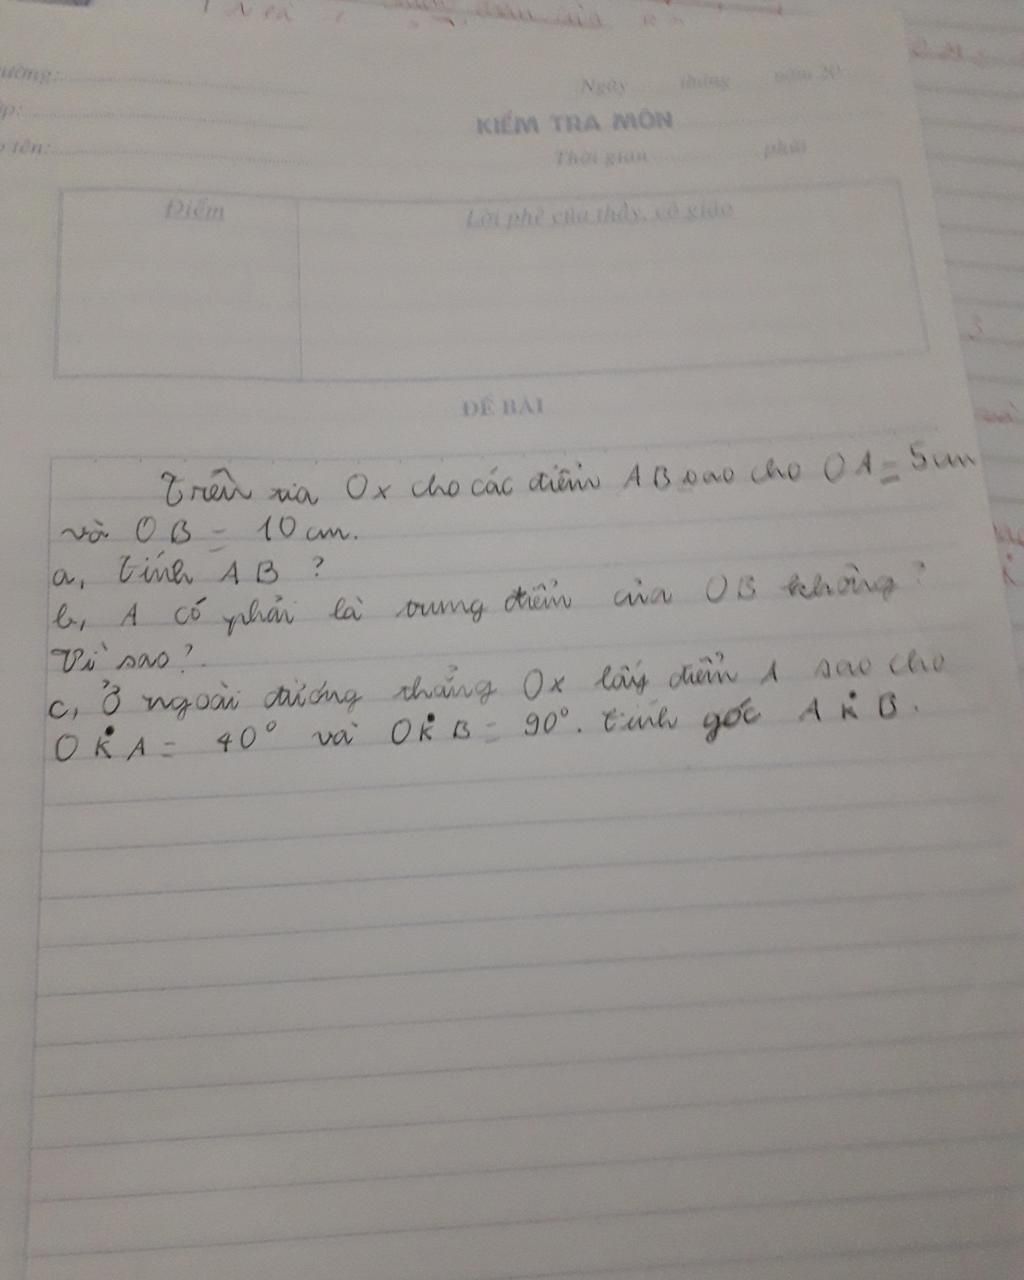 ường:
p:
tên:
Ngày tháng năm 20
KIỂM TRA MÔN
Thời gian phút
Điểm
Lời phê của thầy, cô giáo
ĐỀ BÀI
Trên tia Ox cho các điểm A B sao cho OA = 5 cm
và OB = 10 cm.
a, tính AB ?
b, A có phải là trung điểm của OB không ?
Vì sao ?
c, Ở ngoài đường thẳng Ox lấy điểm sao cho
OKA = 40° và OKB = 90°. tính góc AKB.